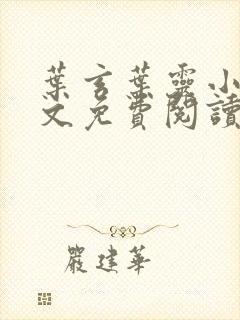 葉言葉靈小
文免費閱讀
嚴建華